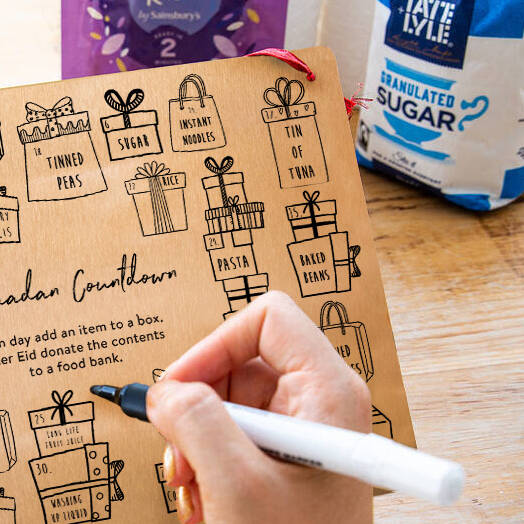 by Sainsbury's
READY IN
2
MINUTES
TATE
LYLE
GRANULATED
SUGAR
18
TINNED
PEAS
6
SUGAR
INSTANT
NOODLES
17.
TIN
OF
TUNA
RICE
24.
PASTA
15.
BAKED
BEANS
adan Countdown
h day add an item to a box.
er Eid donate the contents
to a food bank.
25
LONG LIFE
FRUIT JUICE
30.
WASHING
UP LIQUID